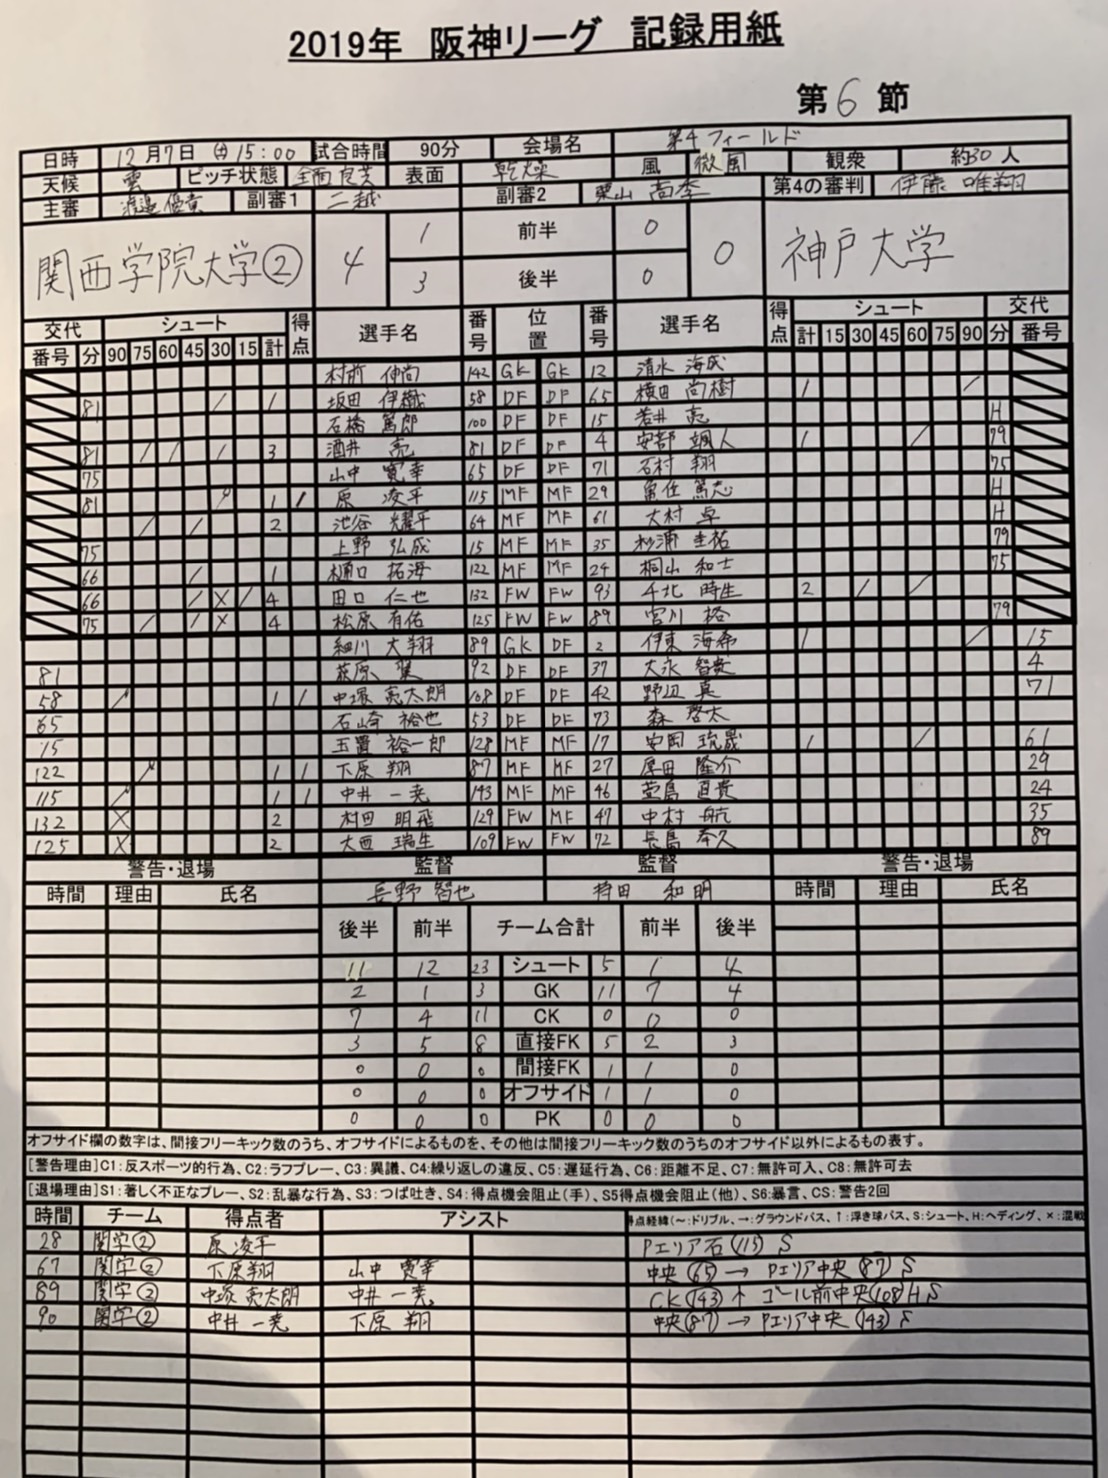 2019年 阪神リーグ 記録用紙
第 6 節
日時 12月7日 土 15:00 試合時間 90分 会場名 第4フィールド
天候 雲 ピッチ状態 全面良芝 表面 乾燥 風 微風 観衆 約30人
主審 渡邉 優 副審1 二越 副審2 栗山 高季 第4の審判 伊藤 唯翔
関西学院大学② 4 1 前半 0 0 神戸大学
3 後半 0
交代 シュート 得点 選手名 番号 位置 番号 選手名 得点 シュート 交代
番号 分 90 75 60 45 30 15 計 計 15 30 45 60 75 90 分 番号
村前 伸尚 142 GK GK 12 清水 海成
81 / 1 坂田 伊樹 58 DF DF 65 横田 尚樹 1 /
石橋 篤郎 100 DF DF 15 若井 亮 H
81 / / / 3 酒井 亮 81 DF DF 4 安部 颯人 1 / 79
75 山中 寛幸 65 DF DF 71 石村 翔 75
81 1 / 原 凌平 115 MF MF 29 篤志 H
/ / 2 池谷 耀平 64 MF MF 61 大村 卓 H
75 上野 弘成 15 MF MF 35 杉浦 圭祐 79
66 / 1 樋口 拓海 122 MF MF 24 桐山 和士 75
66 / X / 4 田口 仁也 132 FW FW 93 千北 時生 2 / /
75 / / X 4 松原 有佑 125 FW FW 89 宮川 裕 79
細川 大翔 89 GK DF 2 伊東 海希 1 / 15
81 萩原 翼 92 DF DF 37 大永 智貴 4
58 1 / 中塚 亮太朗 108 DF DF 42 野辺 真 71
65 石崎 裕也 53 DF DF 73 森 啓太
15 玉置 裕一郎 128 MF MF 17 安岡 琉晟 1 / 61
122 1 1 下原 翔 87 MF MF 27 原田 隆介 29
115 1 1 中井 一尭 143 MF MF 46 萱島 直貴 24
132 X 2 村田 明飛 129 FW MF 47 中村 航 35
125 X 2 大西 瑞生 109 FW FW 72 長島 奉久 89
警告・退場 監督 監督 警告・退場
時間 理由 氏名 長野 智也 持田 和明 時間 理由 氏名
後半 前半 チーム合計 前半 後半
11 12 23 シュート 5 1 4
2 1 3 GK 11 7 4
7 4 11 CK 0 0 0
3 5 8 直接FK 5 2 3
0 0 0 間接FK 1 1 0
0 0 0 オフサイド 1 1 0
0 0 0 PK 0 0 0
オフサイド欄の数字は、間接フリーキック数のうち、オフサイドによるものを、その他は間接フリーキック数のうちのオフサイド以外によるもの表す。
[警告理由]C1:反スポーツ的行為、C2:ラフプレー、C3:異議、C4:繰り返しの違反、C5:遅延行為、C6:距離不足、C7:無許可入、C8:無許可去
[退場理由]S1:著しく不正なプレー、S2:乱暴な行為、S3:つば吐き、S4:得点機会阻止(手)、S5得点機会阻止(他)、S6:暴言、CS:警告2回
時間 チーム 得点者 アシスト 得点経緯(～:ドリブル、→:グラウンドパス、↑:浮き球パス、S:シュート、H:ヘディング、×:混戦
28 関学② 原凌平 Pエリア右(115) S
67 関学② 下原翔 山中 寛幸 中央(65)→Pエリア中央(87) S
89 関学② 中塚 亮太朗 中井 一尭 CK(143)↑ゴール前中央(108)H S
90 関学② 中井 一尭 下原 翔 中央(87)→Pエリア中央(143) S